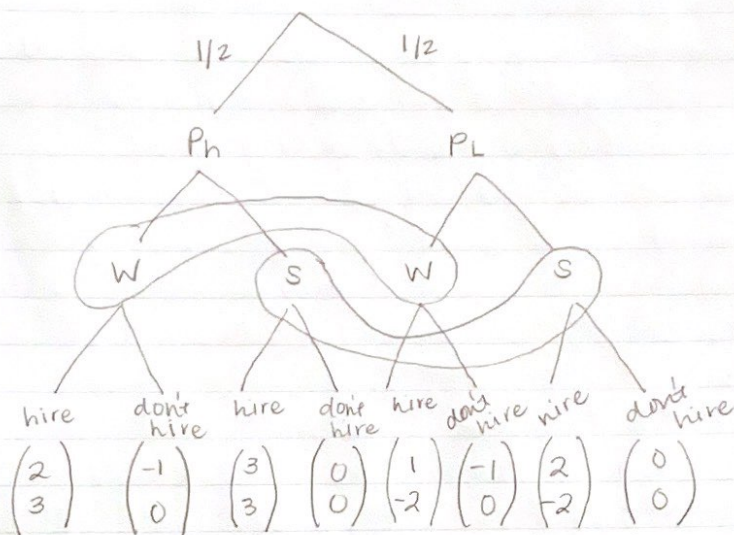 1/2 1/2
Ph PL
W S W S
hire don't hire hire don't hire hire don't hire hire don't hire
2 -1 3 0 1 -1 2 0
3 0 3 0 -2 0 -2 0